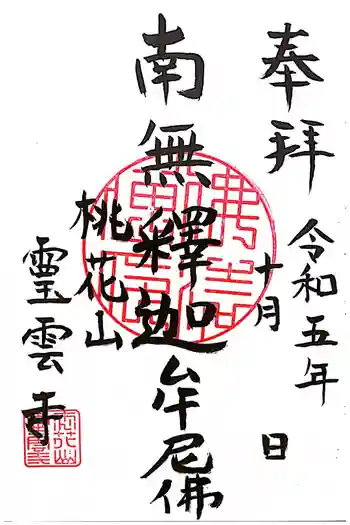 奉拝
令和五年
十月 日
南無釋迦牟尼佛
桃花山
靈雲寺